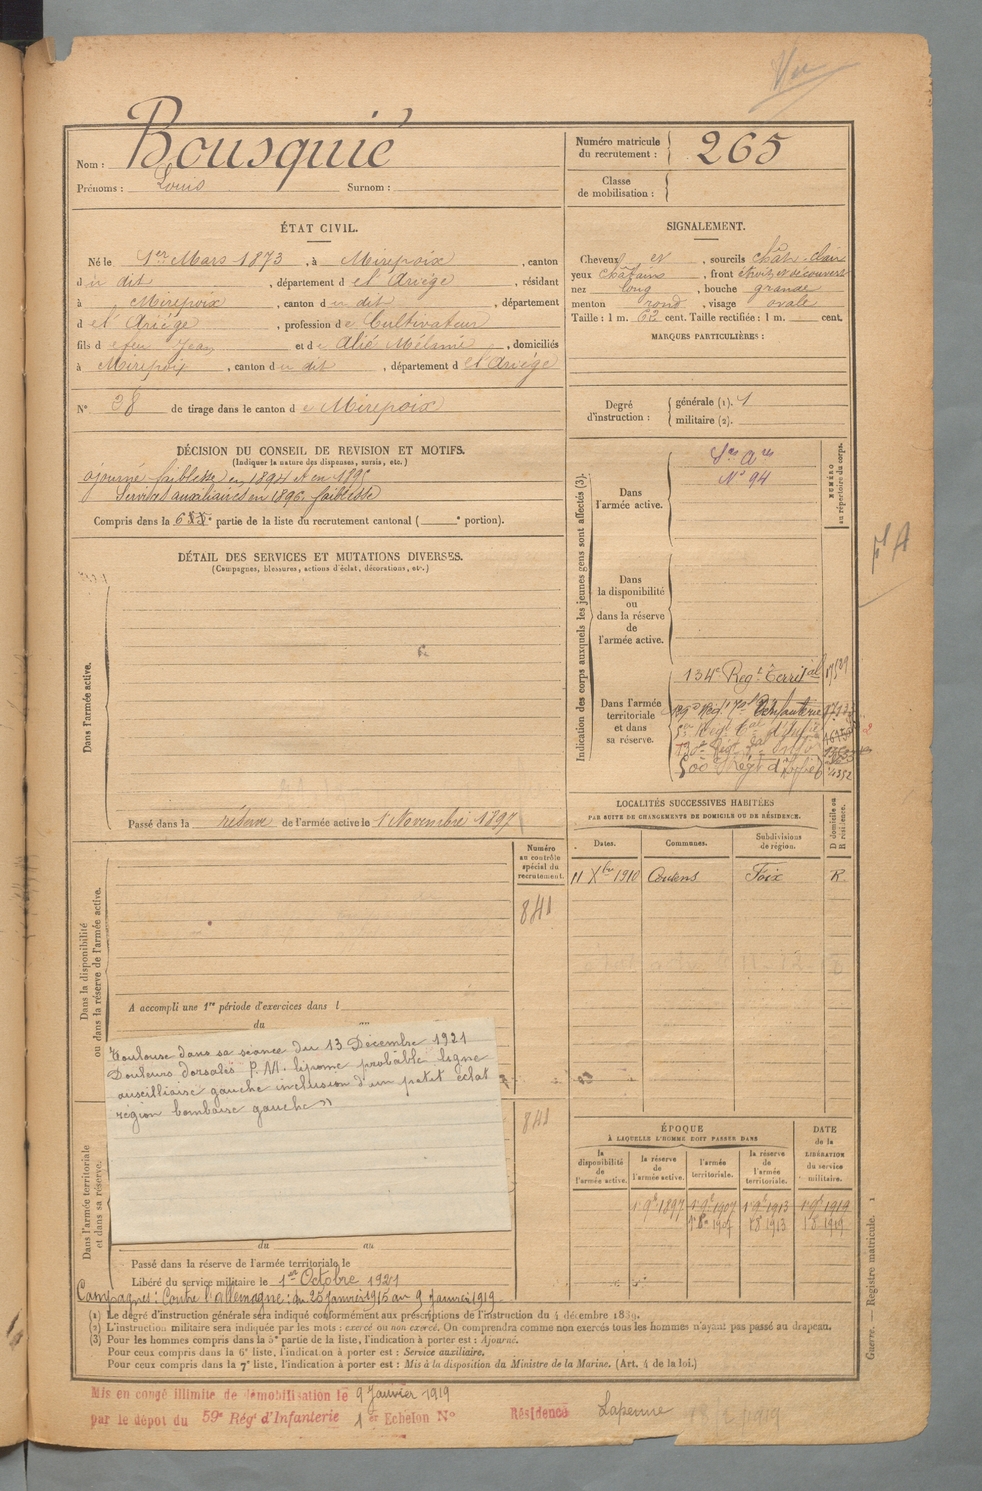 Vu
Nom : Bousquié
Prénoms : Louis Surnom :
Numéro matricule du recrutement : 265
Classe de mobilisation :
ÉTAT CIVIL.
Né le 1er Mars 1873, à Mirepoix, canton
du dit, département de l'Ariège, résidant
à Mirepoix, canton du dit, département
de l'Ariège, profession de Cultivateur
fils de feu Jean et de Alié Mélanie, domiciliés
à Mirepoix, canton du dit, département de l'Ariège
N° 38 de tirage dans le canton de Mirepoix
SIGNALEMENT.
Cheveux et, sourcils chât. clair
yeux châtains, front étroit et découvert
nez long, bouche grande
menton rond, visage ovale
Taille : 1 m. 62 cent. Taille rectifiée : 1 m. cent.
MARQUES PARTICULIÈRES :
Degré d'instruction :
générale (1). 1
militaire (2).
DÉCISION DU CONSEIL DE REVISION ET MOTIFS.
(Indiquer la nature des dispenses, sursis, etc.)
ajourné faiblesse en 1894 et en 1895
Services auxiliaires en 1896. faiblesse
Compris dans la 6e partie de la liste du recrutement cantonal ( e portion).
DÉTAIL DES SERVICES ET MUTATIONS DIVERSES.
(Campagnes, blessures, actions d'éclat, décorations, etc.)
Dans l'armée active.
Passé dans la réserve de l'armée active le 1 Novembre 1897
Indication des corps auxquels les jeunes gens sont affectés (3).
NUMÉRO au répertoire du corps.
Dans l'armée active.
N° 94
Dans la disponibilité ou dans la réserve de l'armée active.
Dans l'armée territoriale et dans sa réserve.
134e Regt Territal
LOCALITÉS SUCCESSIVES HABITÉES
PAR SUITE DE CHANGEMENTS DE DOMICILE OU DE RÉSIDENCE.
Dates. Communes. Subdivisions de région. D domicile ou R résidence.
11 Xbre 1910 Coutens Foix R.
Numéro au contrôle spécial du recrutement.
841
Dans la disponibilité ou dans la réserve de l'armée active.
A accompli une 1re période d'exercices dans l
du au
Toulouse dans sa séance du 13 Decembre 1921
Douleurs dorsales P.M. lipome probable ligne
auxilliaire gauche inclusion d'un petit éclat
région lombaire gauche "
841
Dans l'armée territoriale et dans sa réserve.
du au
Passé dans la réserve de l'armée territoriale le
Libéré du service militaire le 1er Octobre 1921
Campagnes : Contre l'allemagne : du 25 Janvier 1915 au 9 Janvier 1919.
ÉPOQUE
À LAQUELLE L'HOMME DOIT PASSER DANS
la disponibilité de l'armée active. la réserve de l'armée active. l'armée territoriale. la réserve de l'armée territoriale.
DATE de la LIBÉRATION du service militaire.
1 9bre 1897 1 9bre 1907 1 9bre 1913 1 9bre 1919
1 8bre 1907 1 8 1913 1 8 1919
(1) Le degré d'instruction générale sera indiqué conformément aux prescriptions de l'instruction du 4 décembre 1889.
(2) L'instruction militaire sera indiquée par les mots : exercé ou non exercé. On comprendra comme non exercés tous les hommes n'ayant pas passé au drapeau.
(3) Pour les hommes compris dans la 5e partie de la liste, l'indication à porter est : Ajourné.
Pour ceux compris dans la 6e liste, l'indication à porter est : Service auxiliaire.
Pour ceux compris dans la 7e liste, l'indication à porter est : Mis à la disposition du Ministre de la Marine. (Art. 4 de la loi.)
Guerre. — Registre matricule. 1
Mis en congé illimité de démobilisation le 9 Janvier 1919
par le dépôt du 59e Régt d'Infanterie 1er Echelon N° Résidence Lapenne